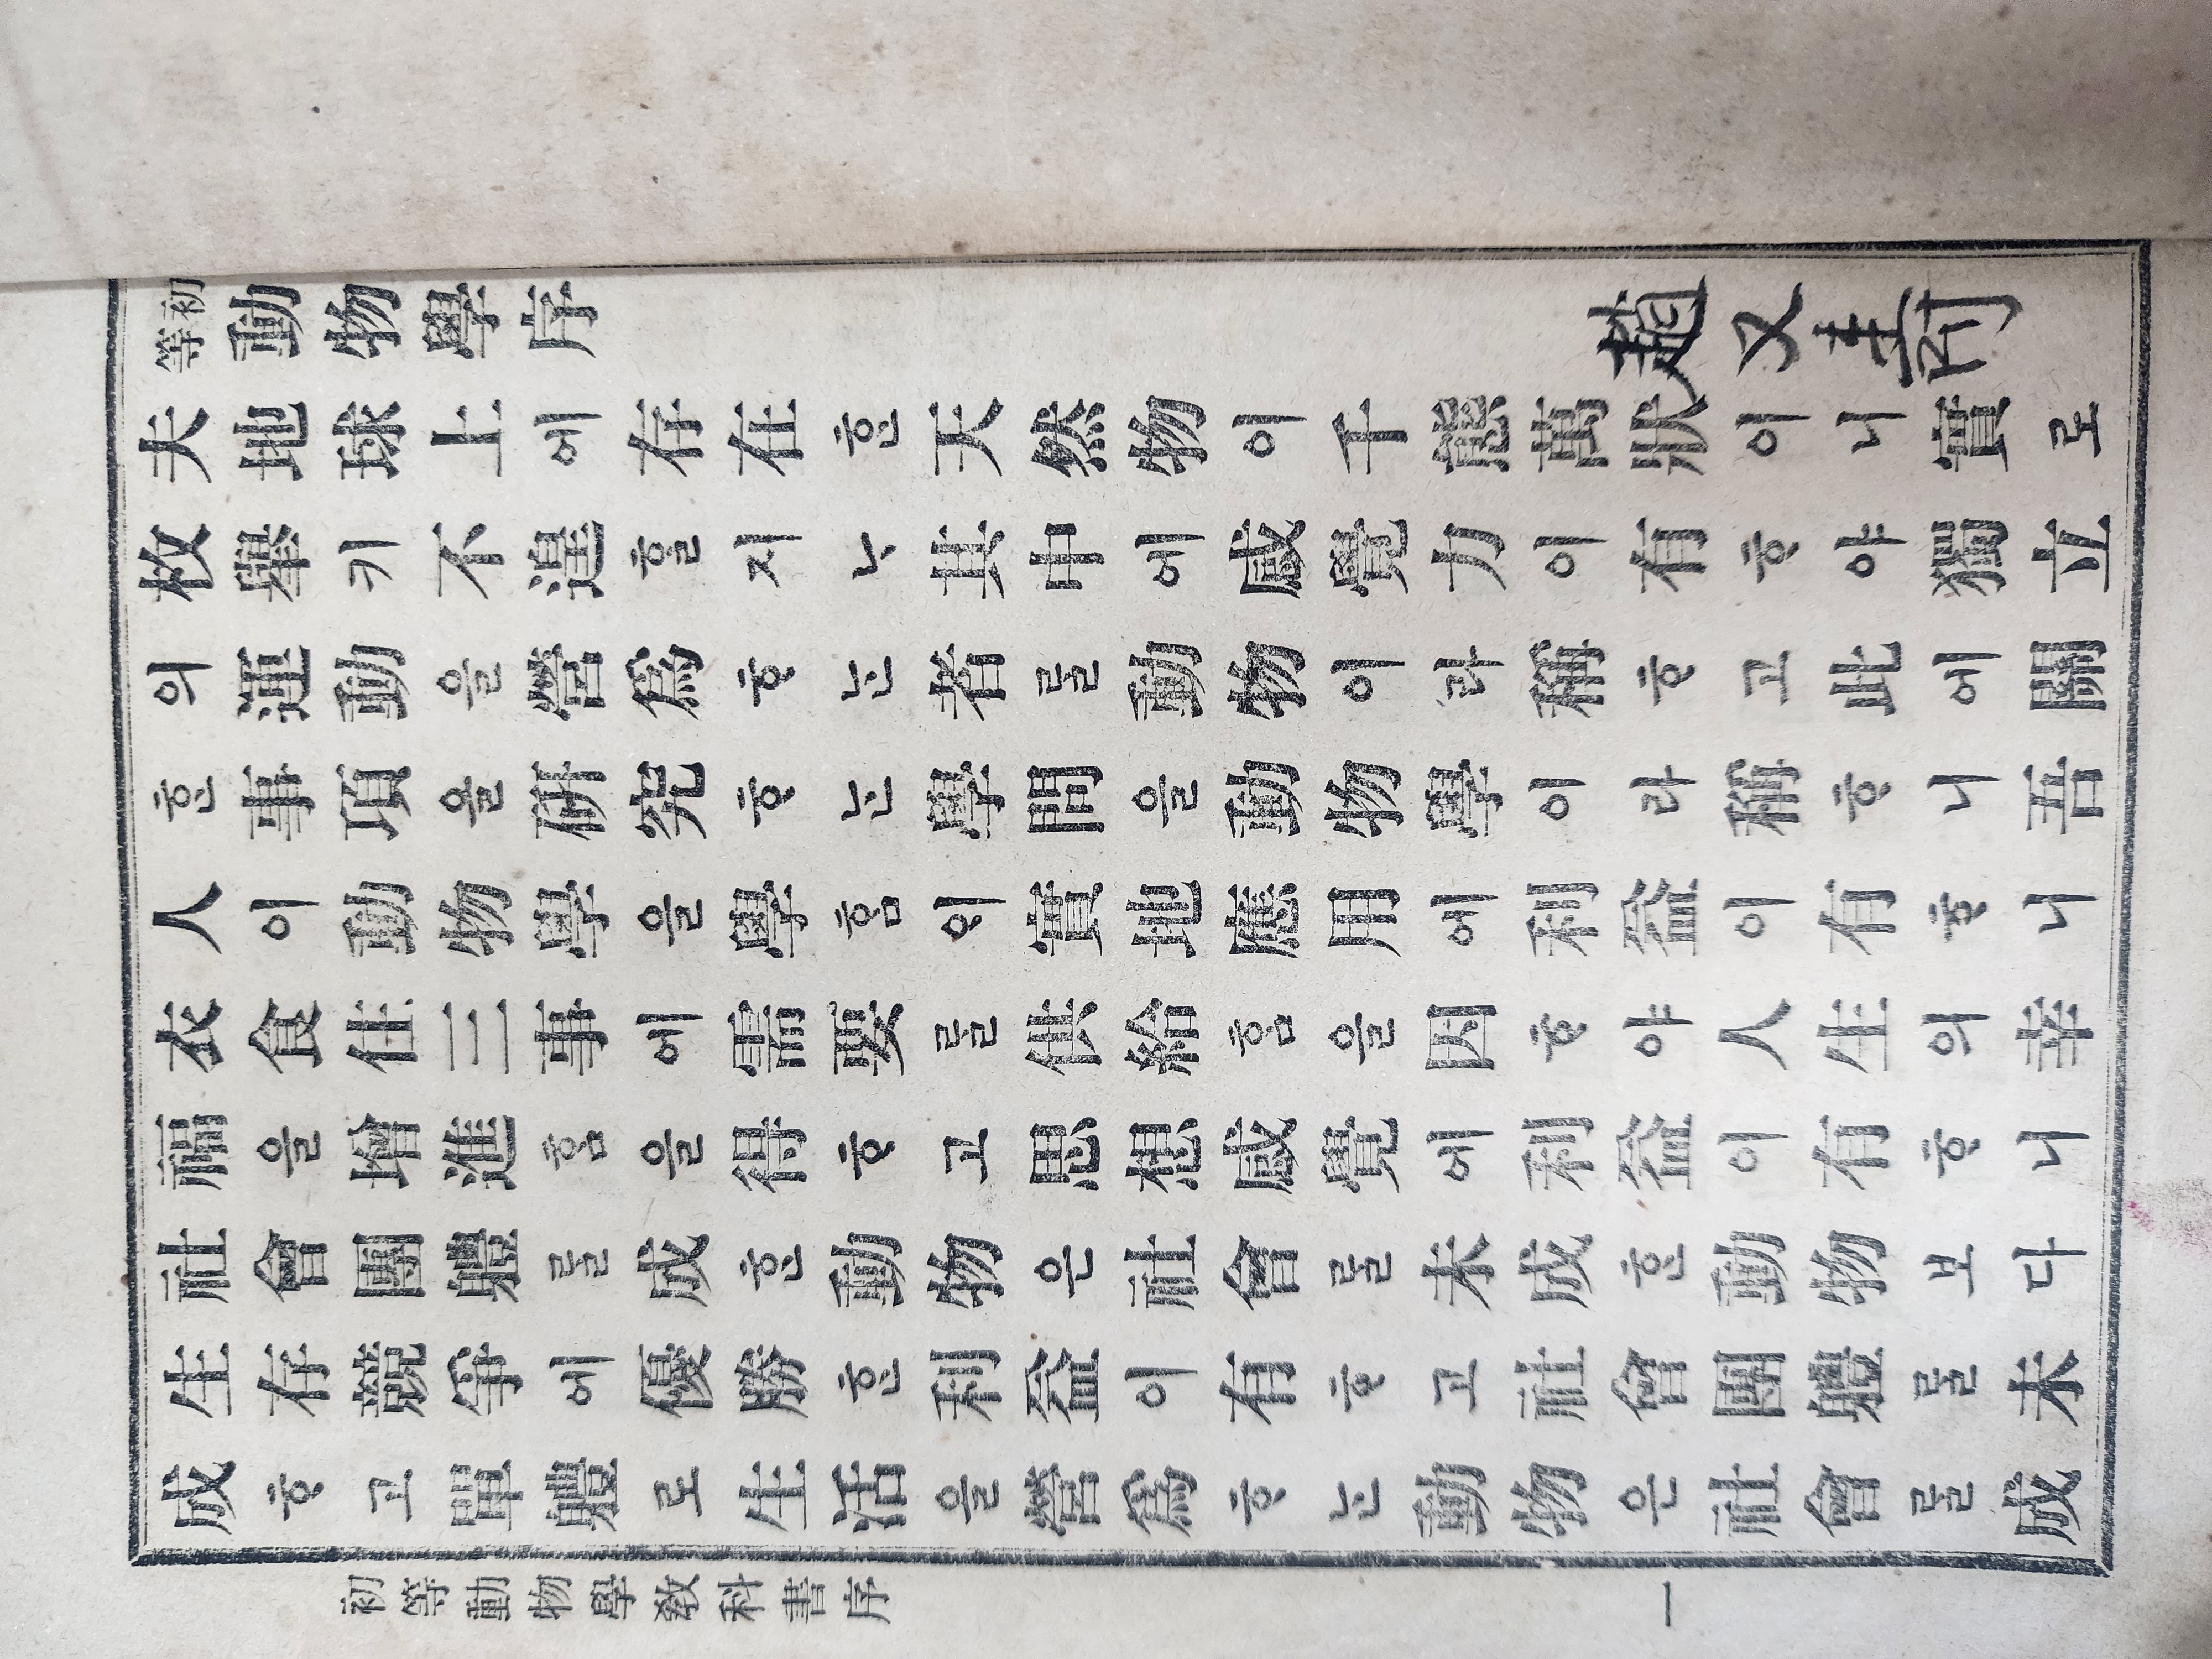 初等動物學序
趙又
夫地球上에存在ᄒᆞᆫ天然物이千態萬狀이니實로
枚擧키不遑ᄒᆞᆯ지ᄂᆞ其中에感覺力이有ᄒᆞ야獨立
의運動을營爲ᄒᆞᄂᆞᆫ者를動物이라稱ᄒᆞ고此에關
ᄒᆞᆫ事項을硏究ᄒᆞᄂᆞᆫ學問을動物學이라稱ᄒᆞ니吾
人이動物學을學ᄒᆞᆷ이實地應用에利益이有ᄒᆞ니
衣食住三事에需要를供給ᄒᆞᆷ을因ᄒᆞ야人生의幸
福을增進ᄒᆞᆷ을得ᄒᆞ고思想感覺에利益이有ᄒᆞ니
社會團體를成ᄒᆞᆫ動物은社會를未成ᄒᆞᆫ動物보다
生存競爭에優勝ᄒᆞᆫ利益이有ᄒᆞ고社會團體를未
成ᄒᆞ고單體로生活을營爲ᄒᆞᄂᆞᆫ動物은社會를成
初等動物學敎科書序
一